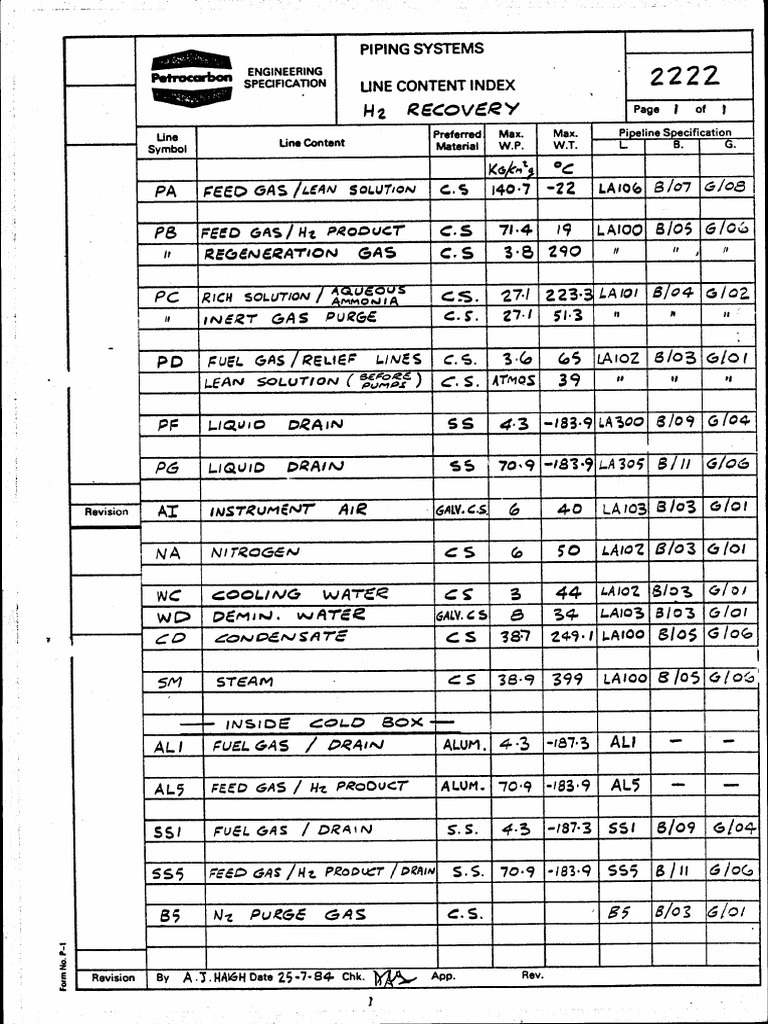 PIPING SYSTEMS
Petrocarbon ENGINEERING SPECIFICATION
LINE CONTENT INDEX
H2 RECOVERY
2222
Page 1 of 1
Line Symbol Line Content Preferred Material Max. W.P. Max. W.T. Pipeline Specification
L. B. G.
KG/cm²g °C
PA FEED GAS/LEAN SOLUTION C.S 140.7 -22 LA106 B/07 G/08
PB FEED GAS/H2 PRODUCT C.S 71.4 19 LA100 B/05 G/06
" REGENERATION GAS C.S 3.8 290 " " "
PC RICH SOLUTION/AQUEOUS AMMONIA C.S. 27.1 223.3 LA101 B/04 G/02
" INERT GAS PURGE C.S. 27.1 51.3 " " "
PD FUEL GAS/RELIEF LINES C.S. 3.6 65 LA102 B/03 G/01
LEAN SOLUTION (BEFORE PUMPS) C.S. ATMOS 39 " " "
PF LIQUID DRAIN SS 4.3 -183.9 LA300 B/09 G/04
PG LIQUID DRAIN SS 70.9 -183.9 LA305 B/11 G/06
Revision
AI INSTRUMENT AIR GALV. C.S. 6 40 LA103 B/03 G/01
NA NITROGEN CS 6 50 LA102 B/03 G/01
WC COOLING WATER CS 3 44 LA102 B/03 G/01
WD DEMIN. WATER GALV. CS 8 34 LA103 B/03 G/01
CD CONDENSATE CS 38.7 249.1 LA100 B/05 G/06
SM STEAM CS 38.9 399 LA100 B/05 G/06
— INSIDE COLD BOX —
AL1 FUEL GAS / DRAIN ALUM. 4.3 -187.3 AL1 — —
AL5 FEED GAS / H2 PRODUCT ALUM. 70.9 -183.9 AL5 — —
SS1 FUEL GAS / DRAIN S.S. 4.3 -187.3 SS1 B/09 G/04
SS5 FEED GAS/H2 PRODUCT/DRAIN S.S. 70.9 -183.9 SS5 B/11 G/06
B5 N2 PURGE GAS C.S. B5 B/03 G/01
Form No. P-1
Revision By A.J. HAIGH Date 25-7-84 Chk. App. Rev.
1